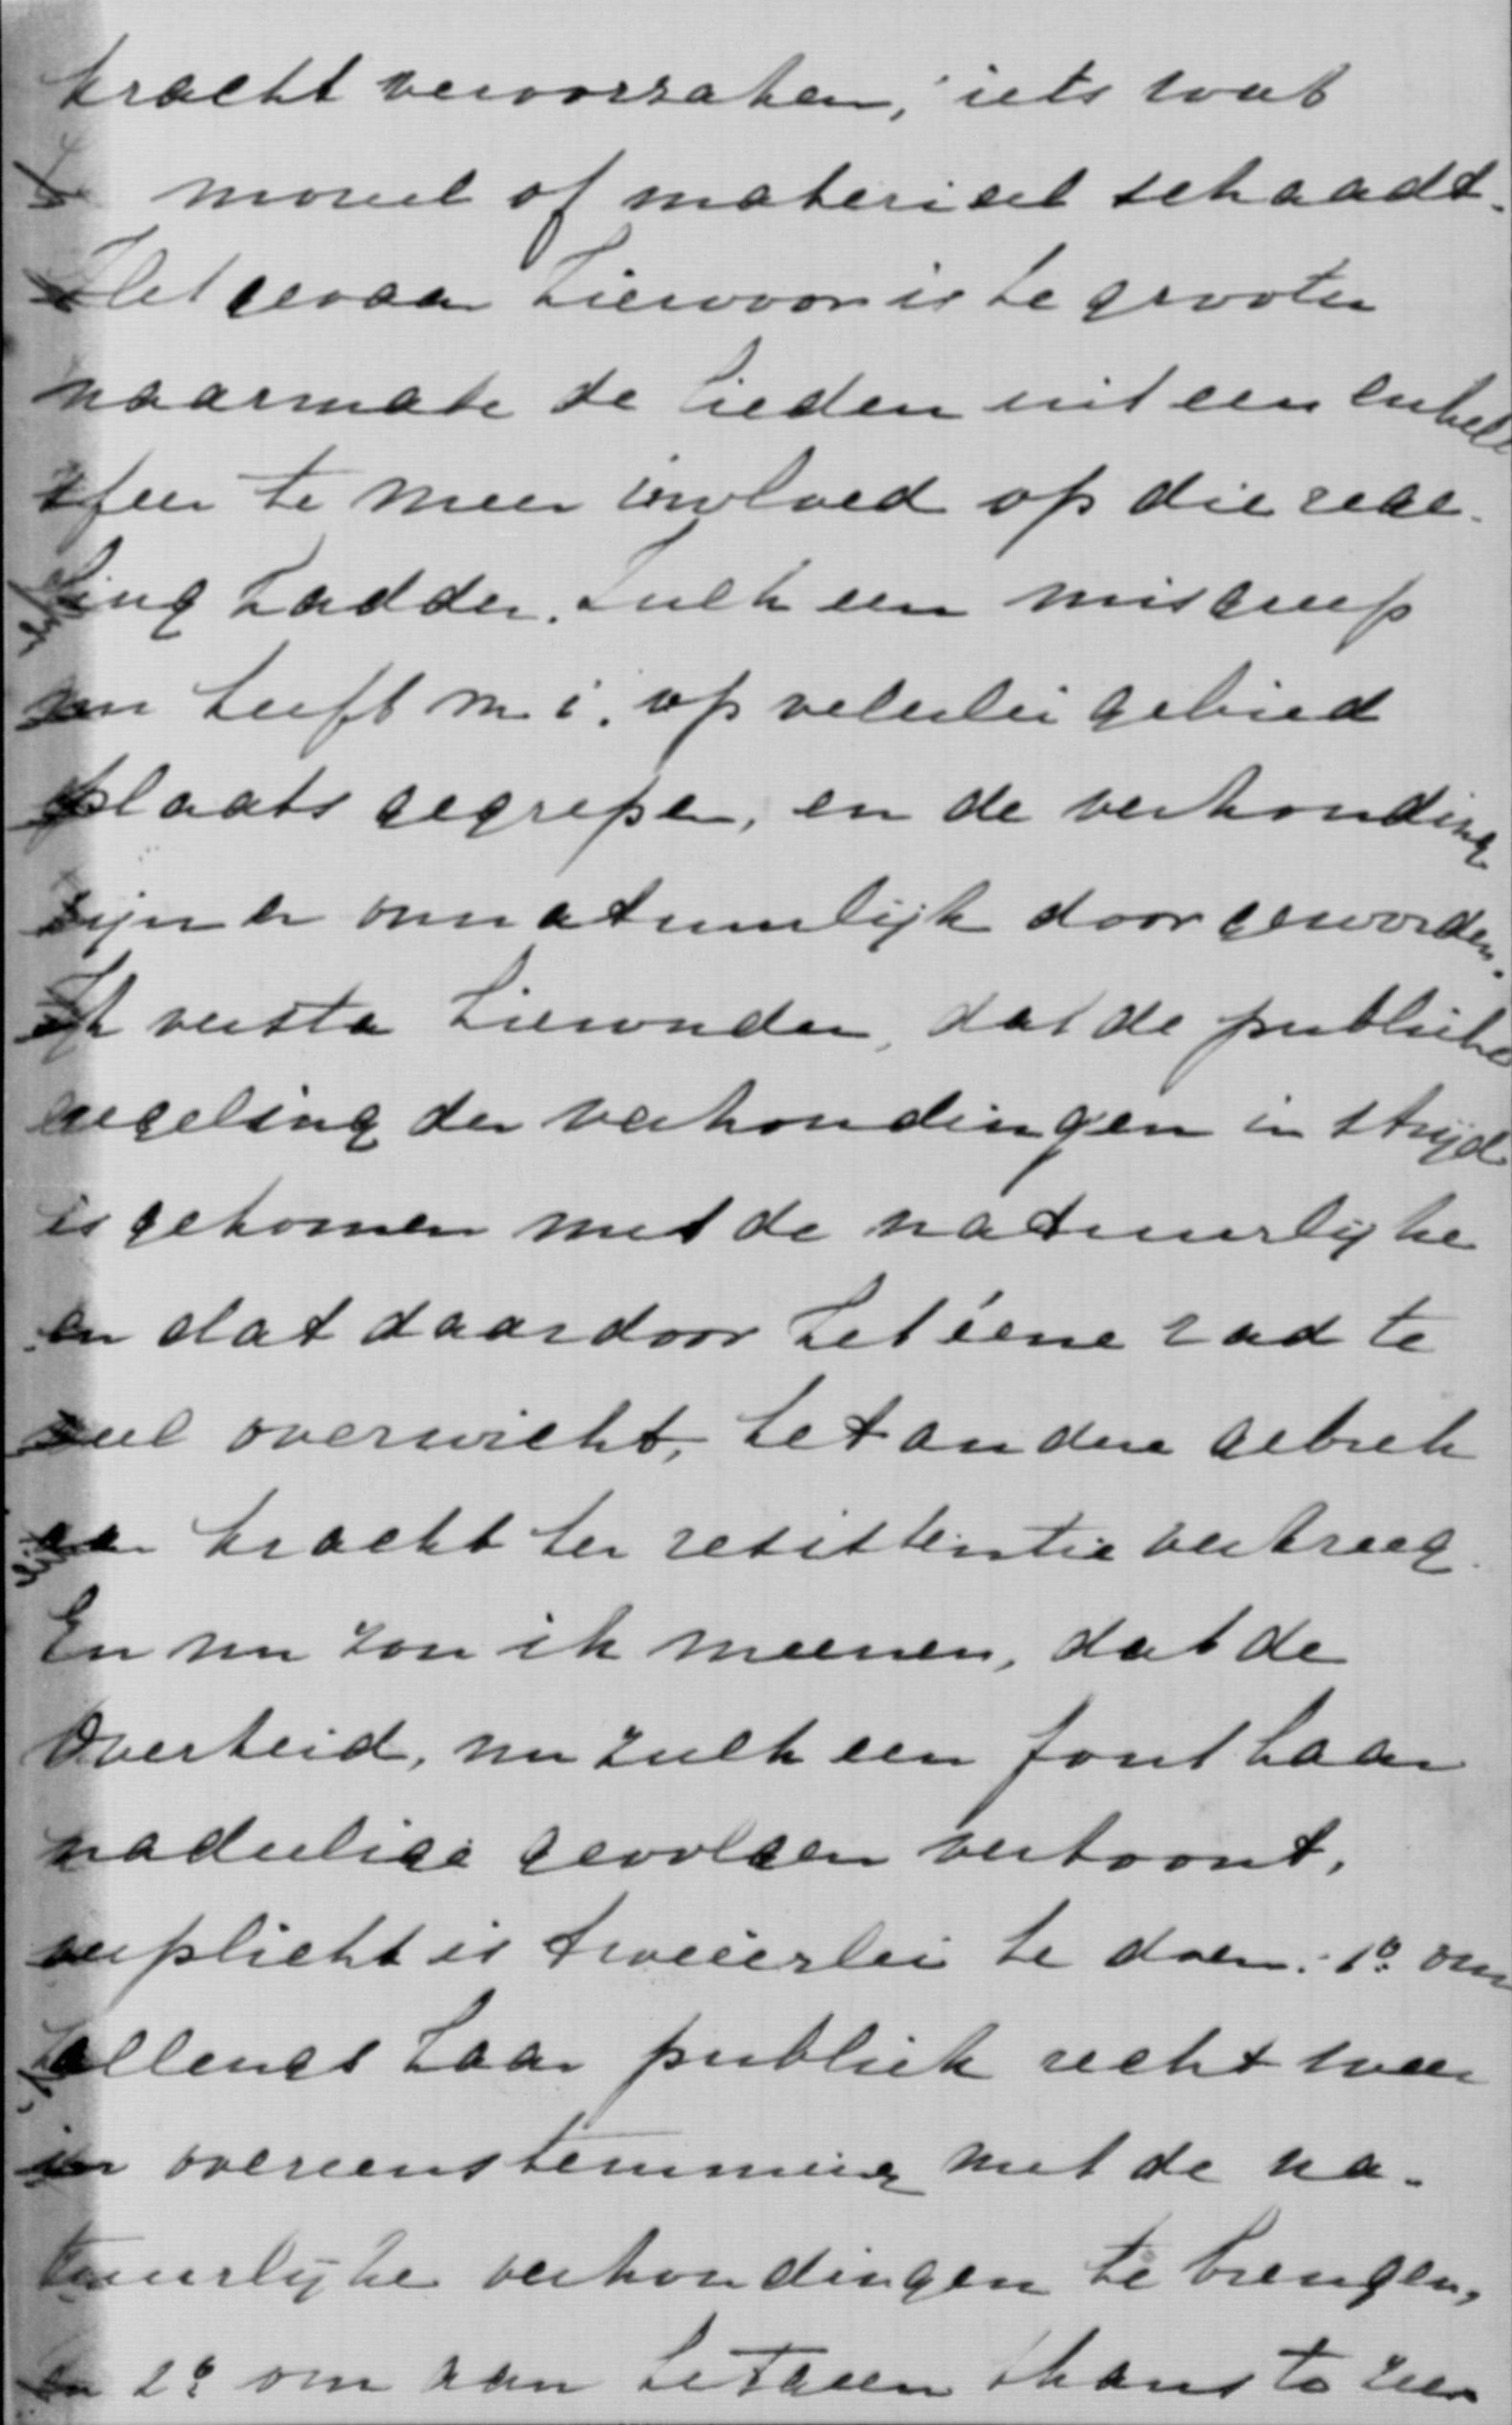 kracht veroorzaken, iets wat
moreel of materieel schaadt.
Het gevaar hiervoor is te grooter
naarmate de lieden uit een enkele
sfeer te meer invloed op die rege-
ling hadden. Zulk een misgreep
nu heeft m.i. op velerlei gebied
plaats gegrepen, en de verhouding
zijn er onnatuurlijk door geworden.
Ik versta hieronder, dat de publieke
regeling der verhoudingen in strijd
is gekomen met de natuurlijke
en dat daardoor het éene rad te
veel overwicht, het andere gebrek
aan kracht ter resistentie verkreeg.
En nu zou ik meenen, dat de
Overheid, nu zulk een fout haar
nadeelige gevolgen vertoont,
verplicht is tweeërlei te doen: 1º om
allengs haar publiek recht weer
in overeenstemming met de na-
tuurlijke verhoudingen te brengen,
en 2º om aan hetgeen thans te zeer